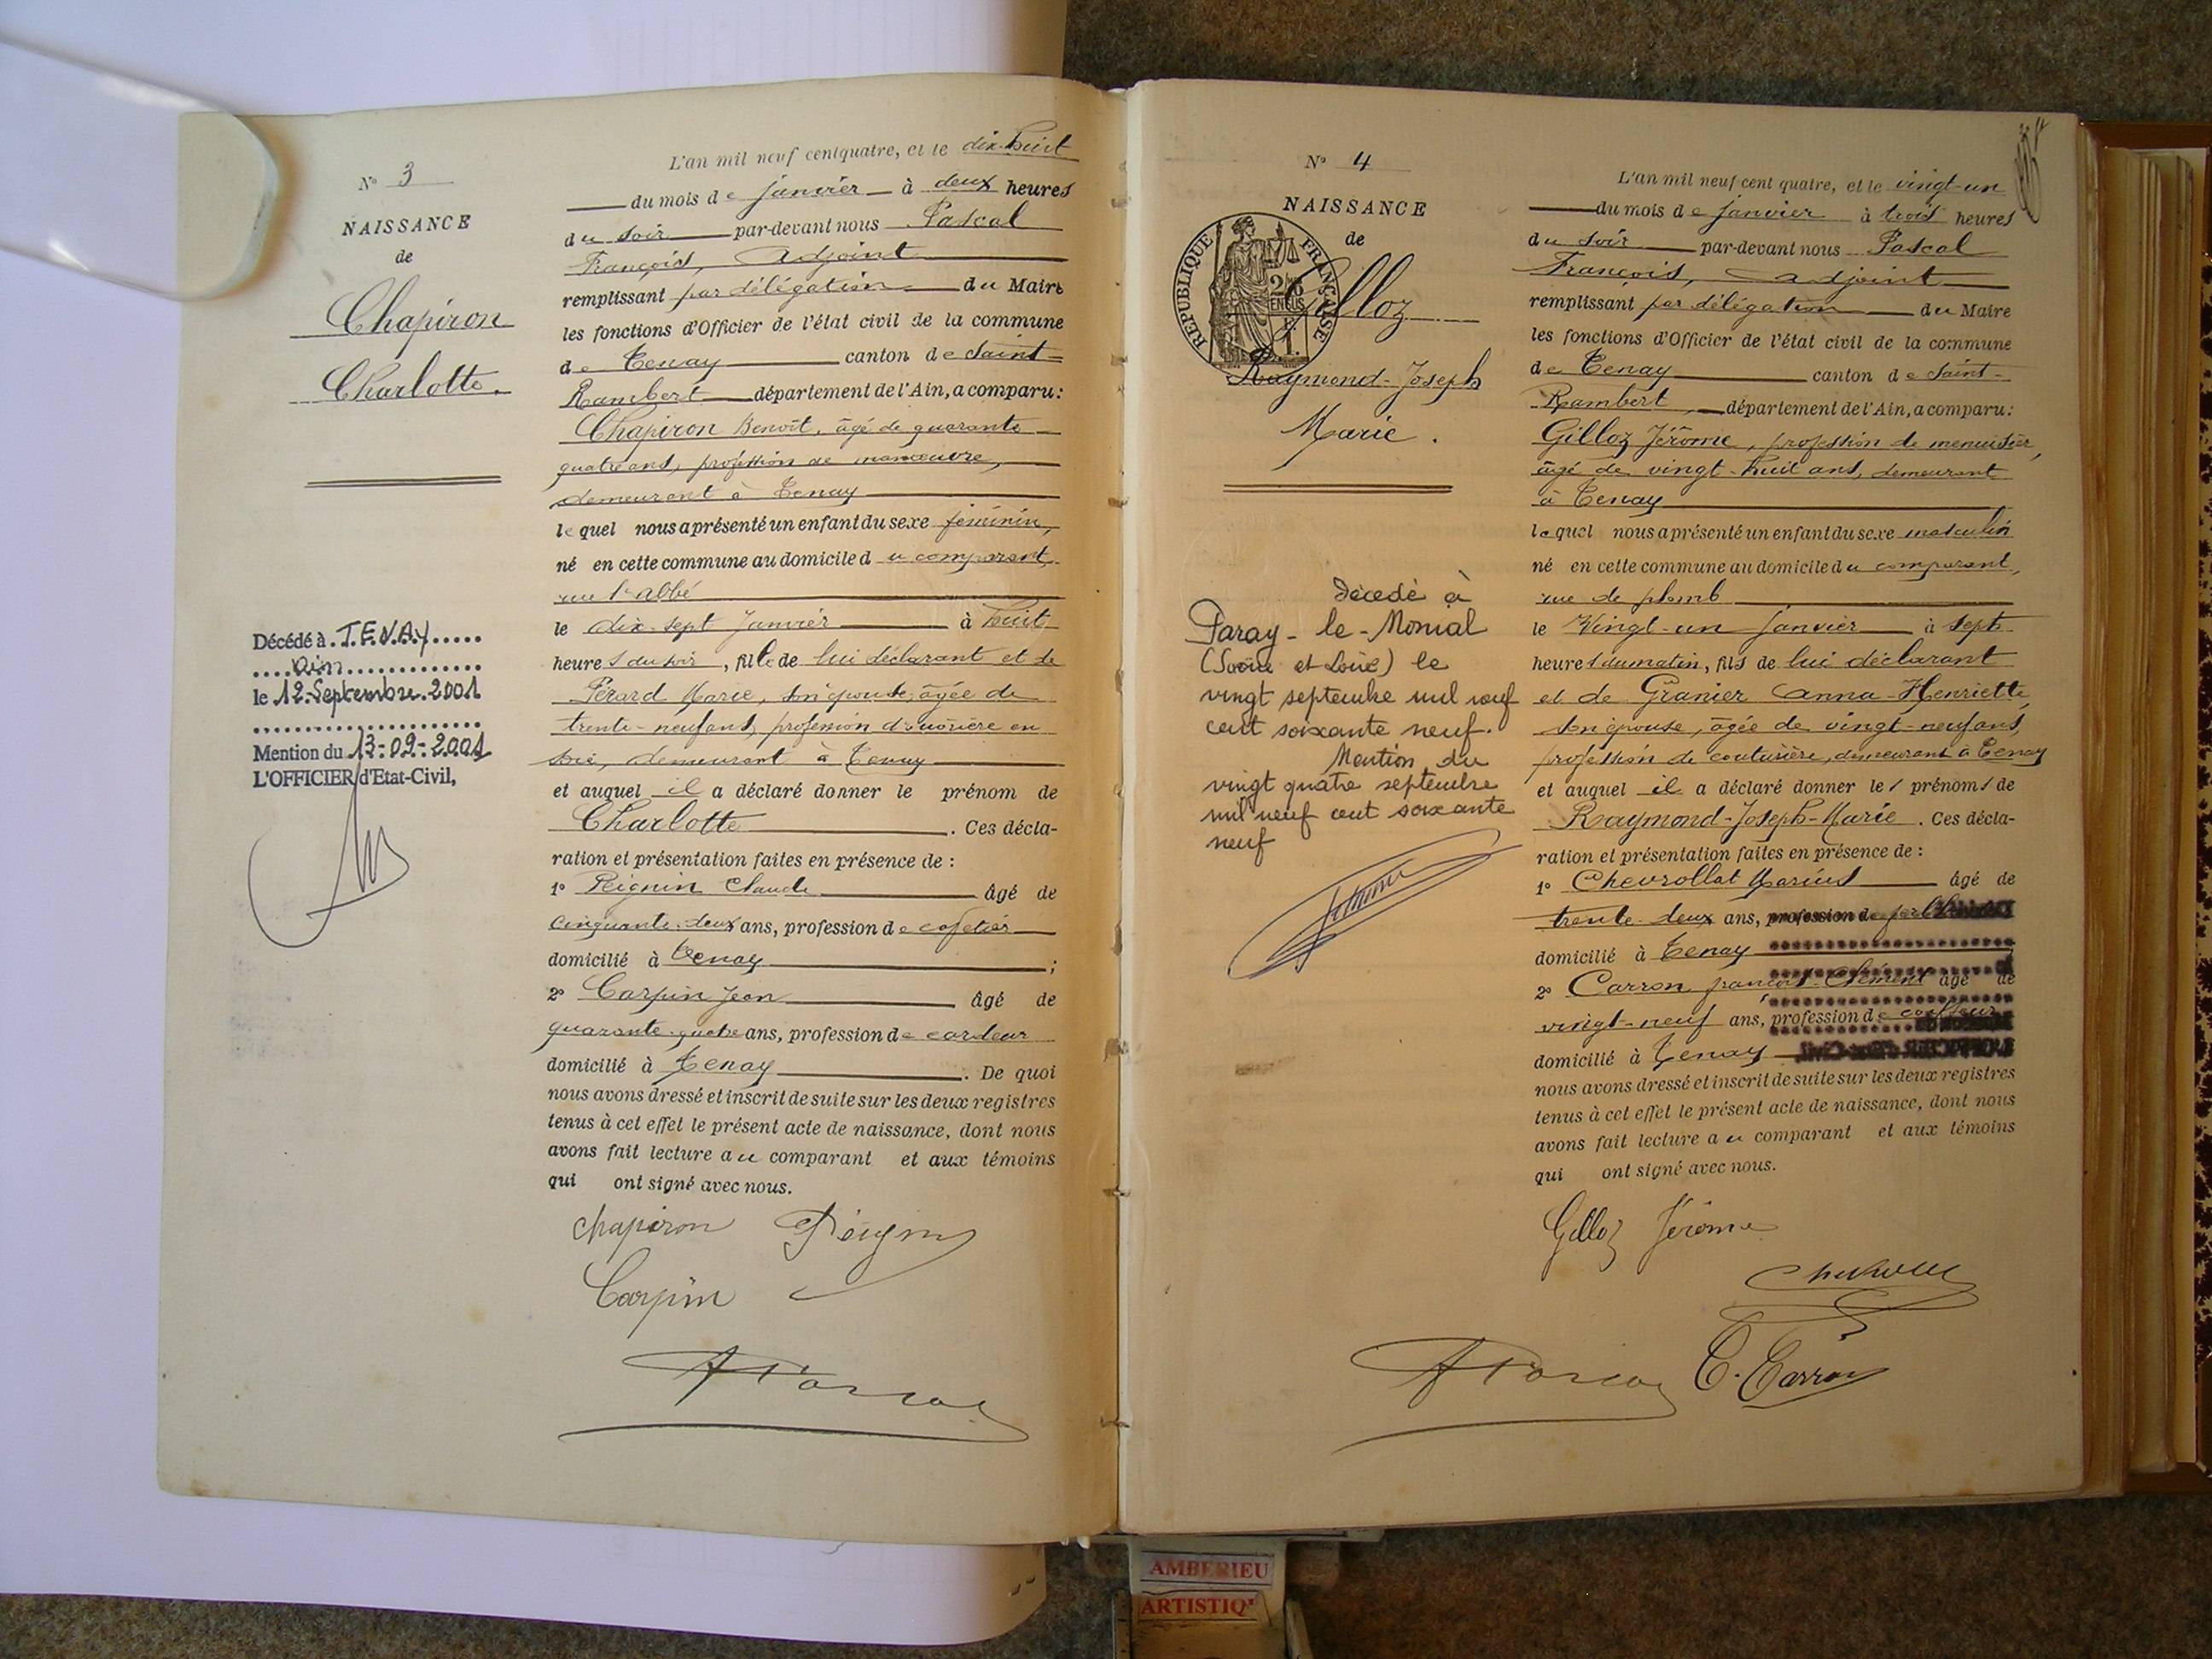 N° 3
NAISSANCE
de
Chapiron
Charlotte.
Décédé à . T.E.N.A.y.....
....Ain.............
le 12. Septembre. 2001
Mention du 13-09-2001
L'OFFICIER d'Etat-Civil,
L'an mil neuf cent quatre, et le dix-huit
du mois de janvier à deux heures
du soir par-devant nous Pascal
François, adjoint
remplissant par délégation du Maire
les fonctions d'Officier de l'état civil de la commune
de Tenay canton de Saint-
Rambert département de l'Ain, a comparu:
Chapiron Benoît, âgé de quarante
quatre ans, profession de manoeuvre,
demeurant à Tenay
lequel nous a présenté un enfant du sexe féminin,
né en cette commune au domicile du comparant,
rue l'abbé
le dix-sept Janvier à huit
heures du soir, fille de lui déclarant et de
Pérard Marie, son épouse, âgée de
trente-neuf ans, profession d'ouvrière en
soie, demeurant à Tenay
et auquel il a déclaré donner le prénom de
Charlotte. Ces décla-
ration et présentation faites en présence de :
1° Peignin Claude âgé de
cinquante-deux ans, profession de cafetier
domicilié à Tenay ;
2° Carpin Jean âgé de
quarante-quatre ans, profession de cardeur
domicilié à Tenay. De quoi
nous avons dressé et inscrit de suite sur les deux registres
tenus à cet effet le présent acte de naissance, dont nous
avons fait lecture au comparant et aux témoins
qui ont signé avec nous.
Chapiron Peignin
Carpin
F Pascal
N° 4
NAISSANCE
de
RÉPUBLIQUE FRANÇAISE
Gilloz
Raymond-Joseph
Marie.
Décédé à
Paray-le-Monial
(Saône et Loire) le
vingt septembre mil neuf
cent soixante neuf.
Mention du
vingt quatre septembre
mil neuf cent soixante
neuf
L'an mil neuf cent quatre, et le vingt-un
du mois de janvier à trois heures
du soir par-devant nous Pascal
François, adjoint
remplissant par délégation du Maire
les fonctions d'Officier de l'état civil de la commune
de Tenay canton de Saint-
Rambert, département de l'Ain, a comparu:
Gilloz Jérôme, profession de menuisier,
âgé de vingt-huit ans, demeurant
à Tenay
lequel nous a présenté un enfant du sexe masculin
né en cette commune au domicile du comparant,
rue de plomb
le Vingt-un Janvier à sept
heures du matin, fils de lui déclarant
et de Granier Anna-Henriette,
son épouse, âgée de vingt-neuf ans,
profession de couturière, demeurant à Tenay
et auquel il a déclaré donner les prénoms de
Raymond-Joseph-Marie. Ces décla-
ration et présentation faites en présence de :
1° Chevrollat Marius âgé de
trente-deux ans, profession de
domicilié à Tenay
2° Carron françois-Clément âgé de
vingt-neuf ans, profession de coiffeur
domicilié à Tenay
nous avons dressé et inscrit de suite sur les deux registres
tenus à cet effet le présent acte de naissance, dont nous
avons fait lecture au comparant et aux témoins
qui ont signé avec nous.
Gilloz Jérôme
F Pascal C. Carron
AMBERIEU
ARTISTIQ